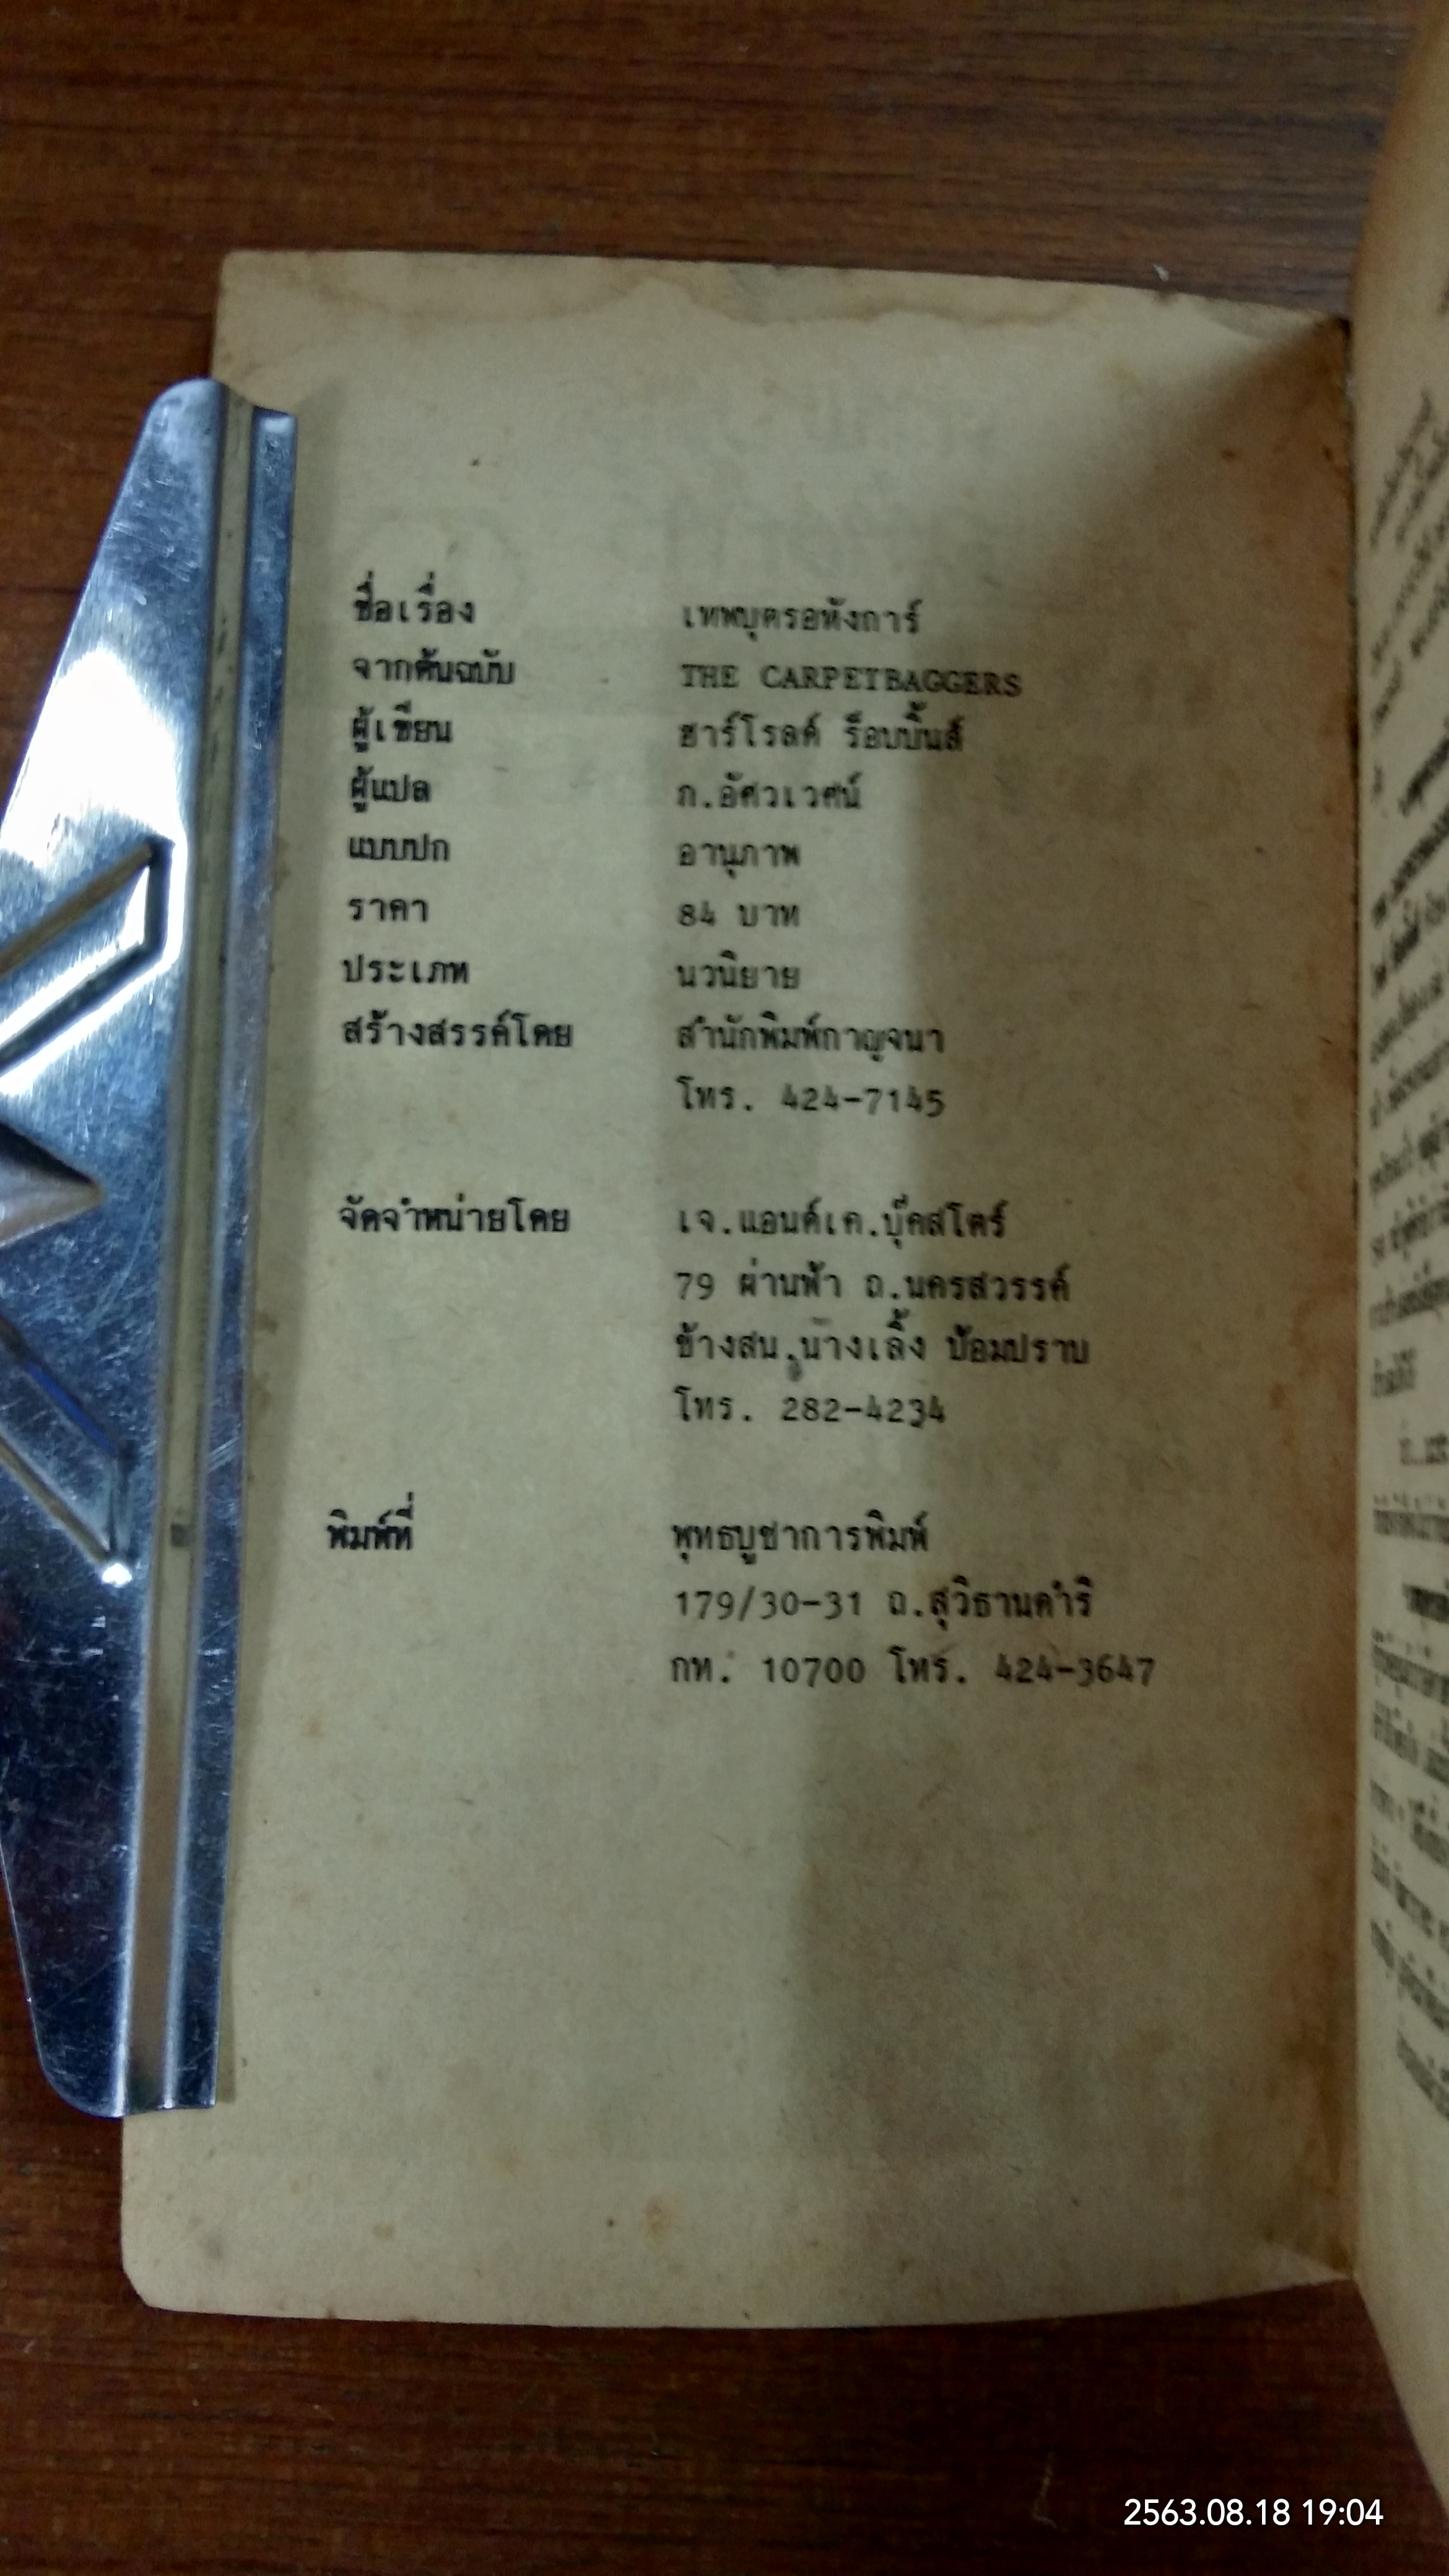 ชื่อเรื่อง เทพบุตรอหังการ์
จากต้นฉบับ THE CARPETBAGGERS
ผู้เขียน ฮาร์โรลด์ ร็อบบิ้นส์
ผู้แปล ภ.อัศวเวศน์
แบบปก อานุภาพ
ราคา 84 บาท
ประเภท นวนิยาย
สร้างสรรค์โดย สำนักพิมพ์กาญจนา
โทร. 424-7145
จัดจำหน่ายโดย เจ.แอนด์เค.บุ๊คสโตร์
79 ผ่านฟ้า ถ.นครสวรรค์
ข้างสน.นางเลิ้ง ป้อมปราบ
โทร. 282-4234
พิมพ์ที่ พุทธบูชาการพิมพ์
179/30-31 ถ.สุวิธานดำริ
กท. 10700 โทร. 424-3647
2563.08.18 19:04